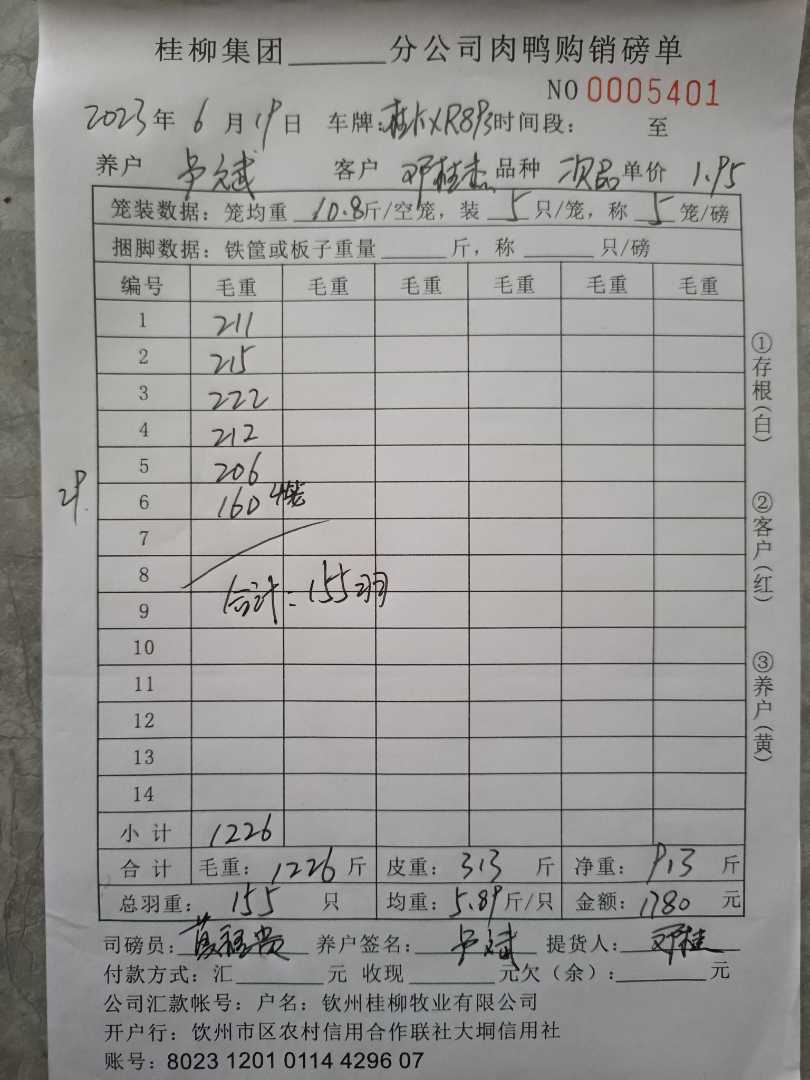 桂柳集团______分公司肉鸭购销磅单
NO 0005401
2023年 6月19日 车牌:桂KXR893时间段: 至
养户 卢斌 客户 邓桂 品种 次品 单价 1.95
笼装数据: 笼均重 10.8斤/空笼, 装 5 只/笼, 称 5 笼/磅
捆脚数据: 铁筐或板子重量______斤, 称______只/磅
编号 毛重 毛重 毛重 毛重 毛重 毛重
1 211
2 215
3 222
4 212
5 206
29. 6 160 4笼
7
8
合计: 155羽
9
10
11
12
13
14
小计 1226
合计 毛重: 1226 斤 皮重: 313 斤 净重: 913 斤
总羽重: 155 只 均重: 5.89斤/只 金额: 1780 元
司磅员: 养户签名: 卢斌 提货人: 邓桂
付款方式: 汇______元 收现______元欠(余): ______元
公司汇款帐号: 户名: 钦州桂柳牧业有限公司
开户行: 饮州市区农村信用合作联社大垌信用社
账号: 8023 1201 0114 4296 07
①存根(白)
②客户(红)
③养户(黄)